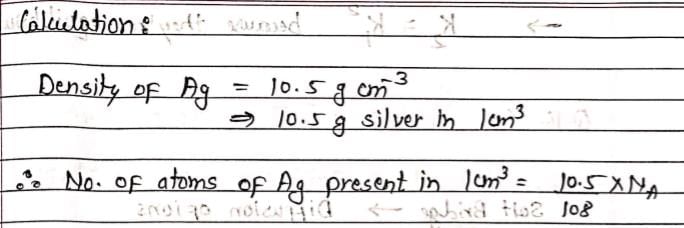 Calculation :
Density of Ag = 10.5 g cm⁻³
⇒ 10.5 g silver in 1cm³
∴ No. of atoms of Ag present in 1cm³ = 10.5 × N_A / 108